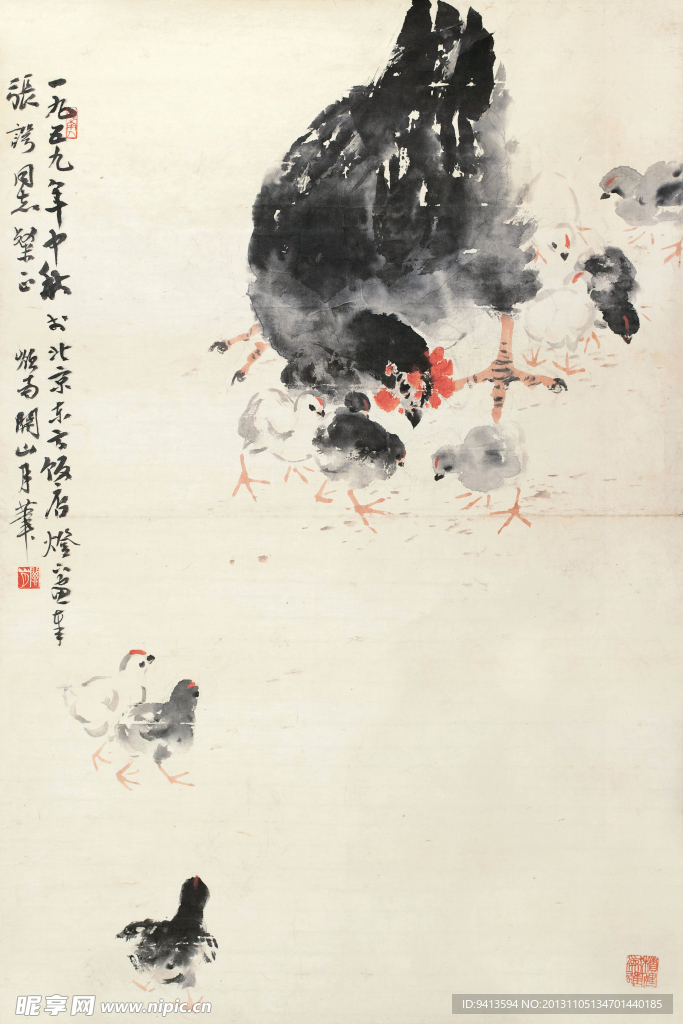 一九五九年中秋於北京东方饭店燈下画奉
張諤同志粲正 岭南関山月筆
昵享网 www.nipic.cn
ID:9413594 NO:20131105134701440185